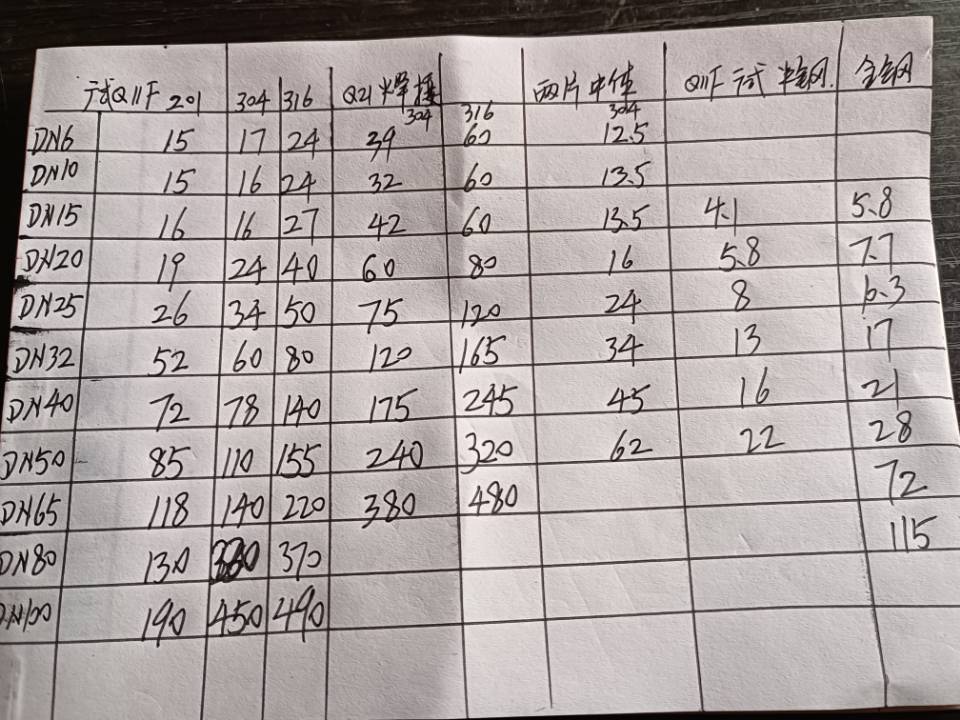 试Q11F 201 304 316 Q21 焊接 304 316 两片中体 304 Q11F 试 半钢 全钢
DN6 15 17 24 39 60 12.5
DN10 15 16 24 32 60 13.5
DN15 16 16 27 42 60 13.5 4.1 5.8
DN20 19 24 40 60 80 16 5.8 7.7
DN25 26 34 50 75 120 24 8 6.3
DN32 52 60 80 120 165 34 13 17
DN40 72 78 140 175 245 45 16 21
DN50 85 110 155 240 320 62 22 28
DN65 118 140 220 380 480 72
DN80 130 370 115
DN100 190 450 490